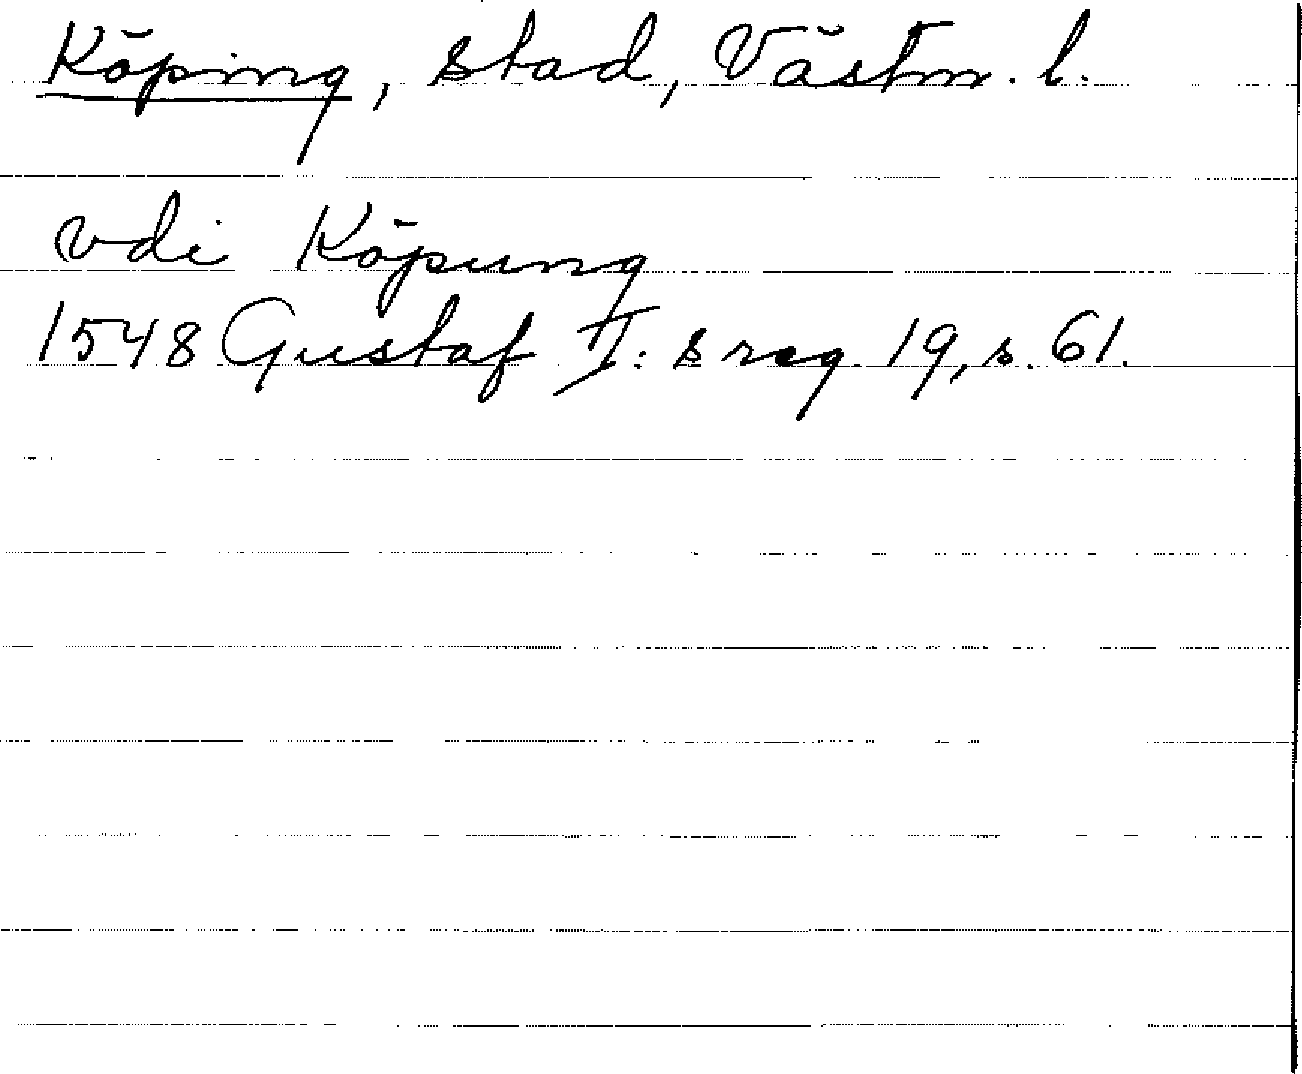 Köping, stad, Västm. l.
vdi Köpung
1548 Gustaf I: s reg. 19, s. 61.